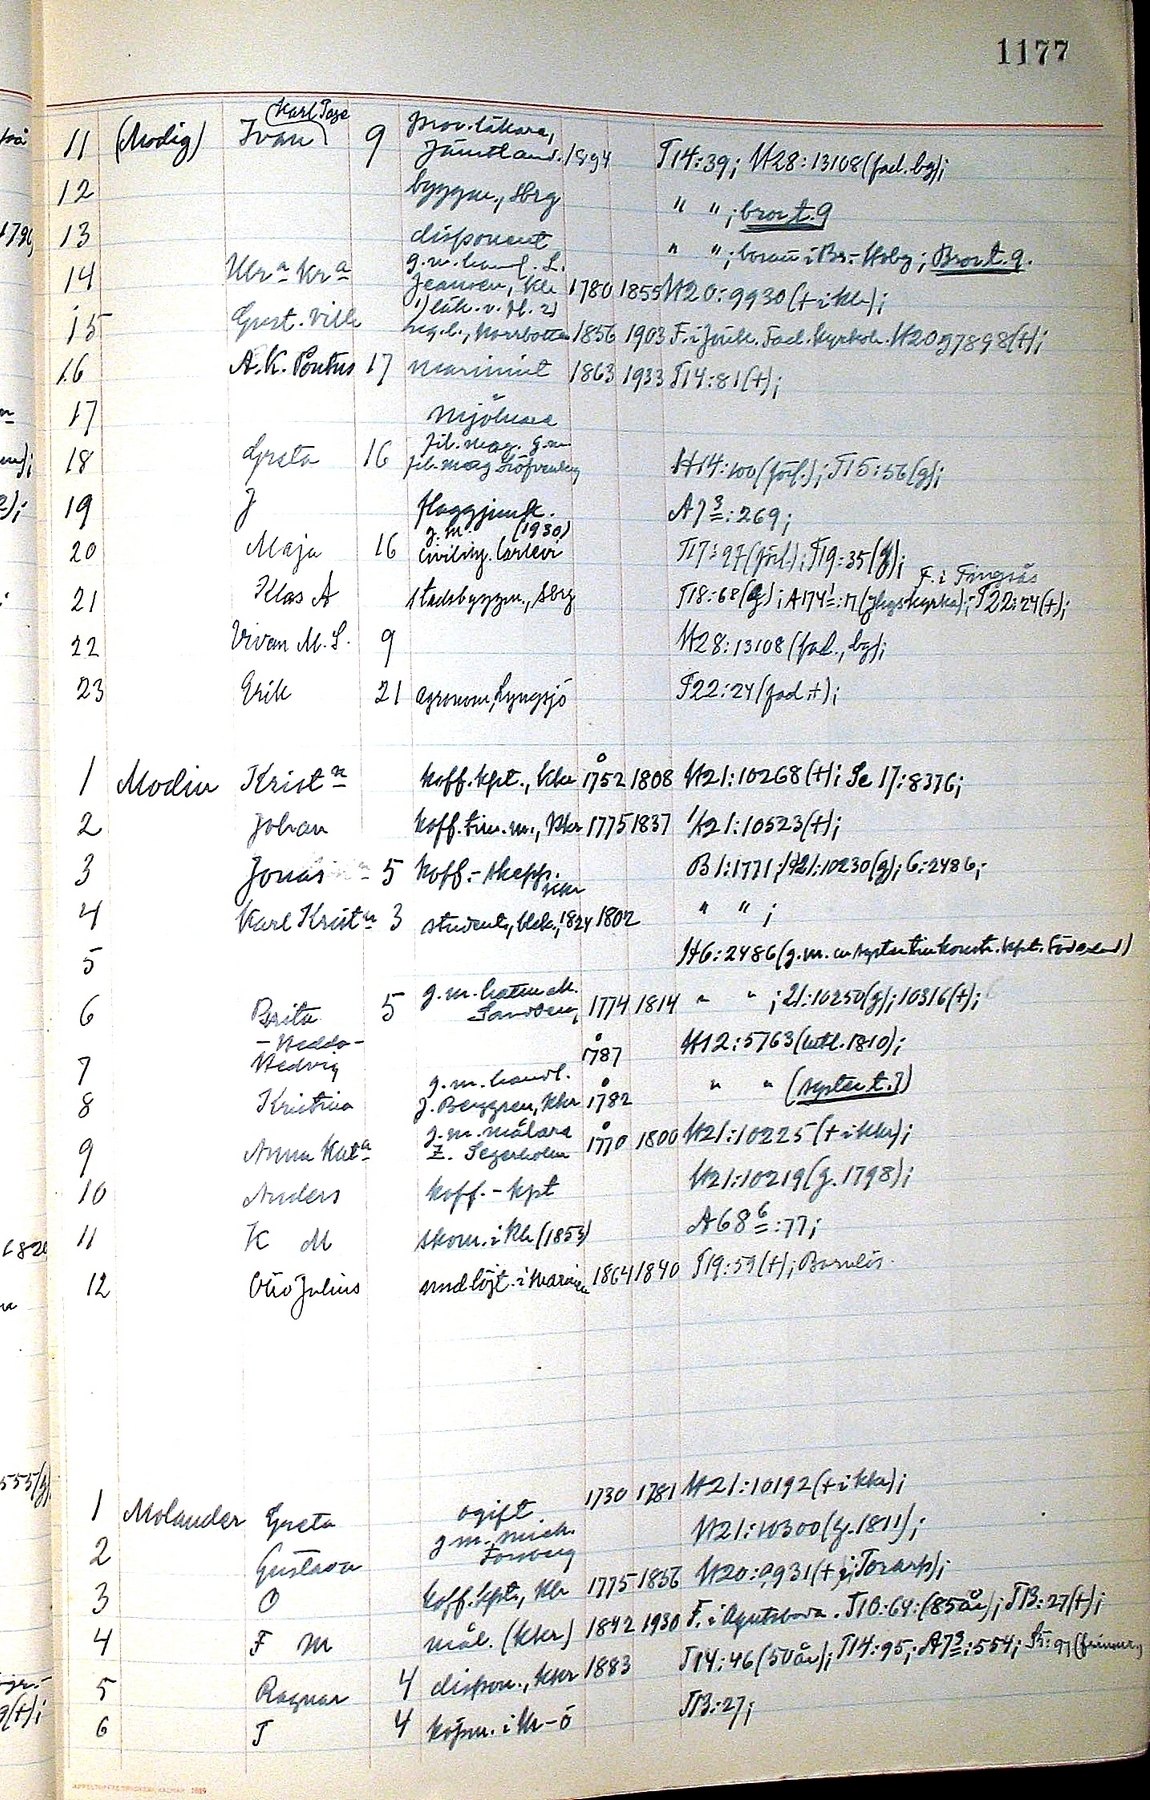 1177
11 (Modig) Ivan (Karl Tage) 9 prov.läkare, Jämtland. 1894 T14:39; H28:13108 (fad. bg);
12 byggm., Sbrg " "; bror t. 9
13 disponent " "; i Br.-Hoby; Bror t. 9.
14 Ulra Kra g.m. handl. L. Jeansson, Klr 1780 1855 H20:9930 (+ i Klr);
15 Gust. Vilh 1) läk. v. fl. 2) reg.l., Norrbotten 1856 1903 F. i Jönk. Fad. kyrkoh. H20 7898(+);
16 A.K. Pontus 17 marinint 1863 1933 T14:81(+);
17 mjölnare
18 Greta 16 fil. mag. g.m. fil. mag H14:100 (förl.); T15:56(g);
19 J flaggjunk. A7 3:269;
20 Maja 16 g.m. (1930) civiling. Carlevi T17:97 (förl.); T19:35 (g);
21 Klas A stadsbyggm., Sbrg T18:68 (g); A174 1:17 (kyrka); T22:24(+); F. i Tingsås
22 Vivan M. S. 9 H28:13108 (fad., bg);
23 Erik 21 agronom, Lyngsjö T22:24 (fad. +);
1 Modin Krist n koff.kpt., Kkr 1752 1808 H21:10268 (+); Se 17:8376;
2 Johan koff.tim.m., Kkr 1775 1837 H21:10523(+);
3 Jonas 5 koff.-skepp. Kkr B1:1771; H21:10230(g); 6:2486;
4 Karl Krist n 3 student, Klr., 1824 1802 " " ;
5 H6:2486 (g.m. en syster t. konstr. kpt.
6 Brita 5 g.m. hattmak. Sandsten, 1774 1814 " " ; 21:10250(g); 10316(+);
7 -Hedda- Hedvig 1787 H12:5763 (utl. 1810);
8 Kristina g.m. handl. J. Berggren, Kkr 1782 " " (syster t. 7)
9 Anna Kata g.m. målare Z. Segerholm 1770 1800 H21:10225 (+ i Kkr);
10 Anders koff.-kpt H21:10219 (g. 1798);
11 K M skom. i Klr (1853) A68 6:77;
12 Otto Julius undlöjt. i Marinen 1864 1840 T19:59(+); Barnlös.
1 Molander Greta ogift 1730 1781 H21:10192 (+ i Kkr);
2 Gustava g.m. Forsberg H21:10300 (g. 1811);
3 O koff.kpt., Klr 1775 1856 H20:9931 (+ i Torarp);
4 F M mål. (Kkr) 1842 1930 F. i T10:64: (85 år); T13:27(+);
5 Ragnar 4 dispon., Kkr 1883 T14:46 (50 år); T14:95; A7 9:554;
6 T 4 köpm. i Kr-ö T13:27;